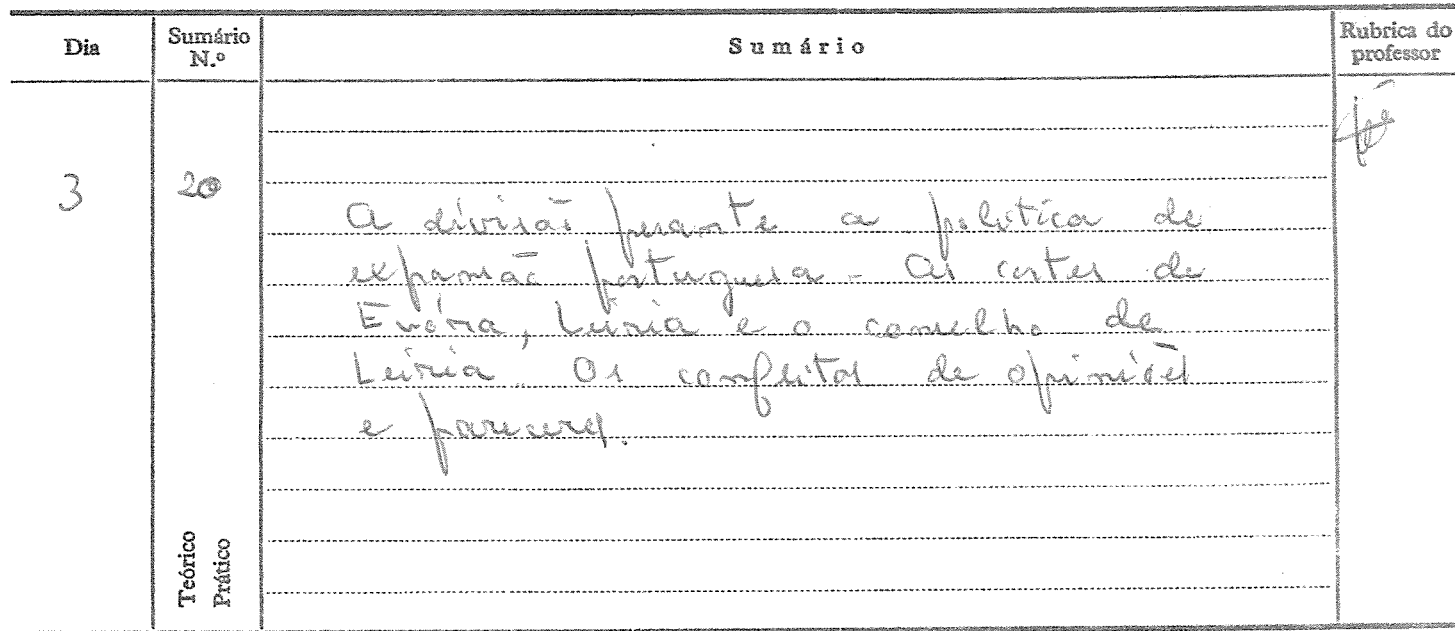 Dia
Sumário N.º
Sumário
Rubrica do professor
3
20
A divisão perante a política de
expansão portuguesa - As cortes de
Evóra, Leiria e o conselho de
Leiria. Os conflitos de opiniões
e pareceres.
Teórico
Prático